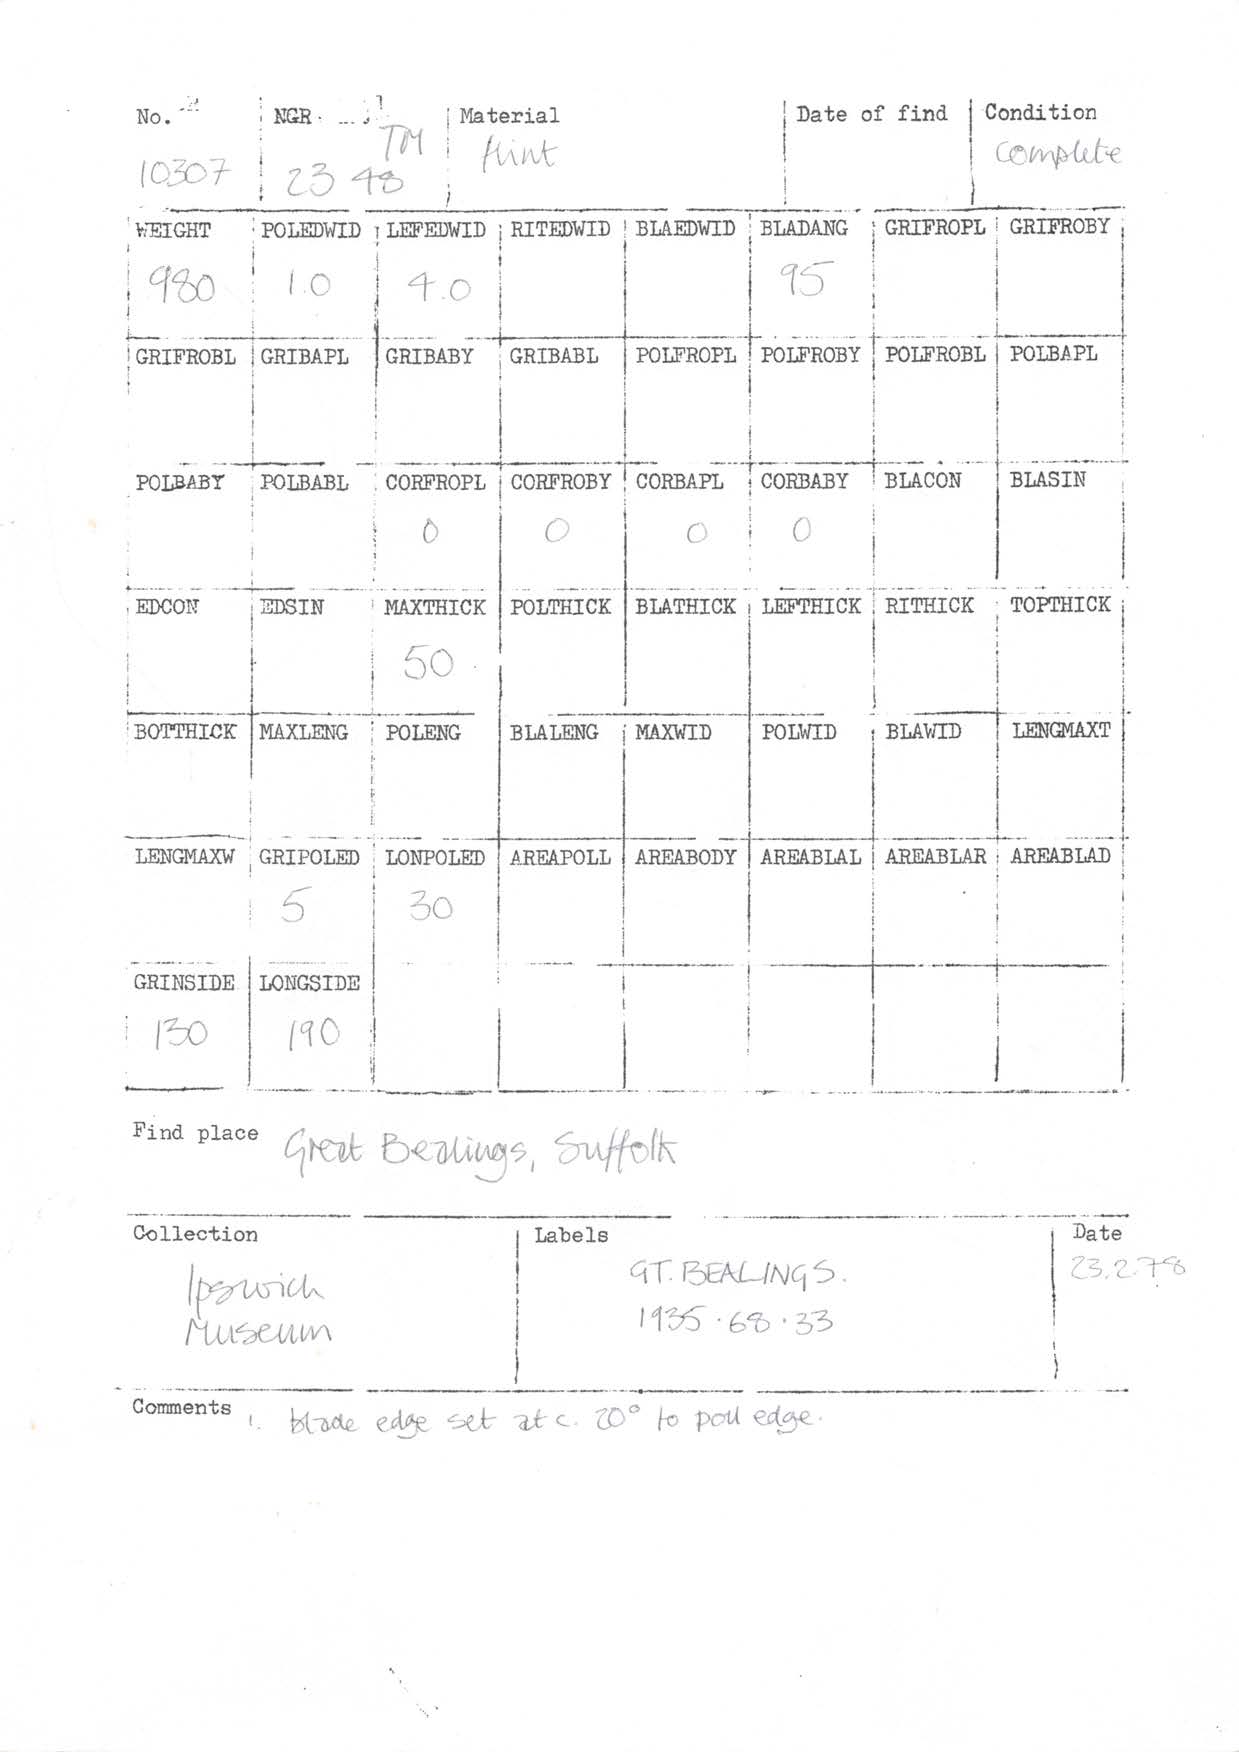 No. NGR Material Date of find Condition
10307 TM 23 48 flint complete
WEIGHT POLEDWID LEFEDWID RITEDWID BLAEDWID BLADANG GRIFROPL GRIFROBY
980 1.0 4.0 95
GRIFROBL GRIBAPL GRIBABY GRIBABL POLFROPL POLFROBY POLFROBL POLBAPL
POLBABY POLBABL CORFROPL CORFROBY CORBAPL CORBABY BLACON BLASIN
0 0 0 0
EDCON EDSIN MAXTHICK POLTHICK BLATHICK LEFTHICK RITHICK TOPTHICK
50
BOTTHICK MAXLENG POLENG BLALENG MAXWID POLWID BLAWID LENGMAXT
LENGMAXW GRIPOLED LONPOLED AREAPOLL AREABODY AREABLAL AREABLAR AREABLAD
5 30
GRINSIDE LONGSIDE
130 190
Find place Great Bealings, Suffolk
Collection Labels Date
Ipswich Museum
GT. BEALINGS.
1935.68.33
23.2.78
Comments 1. blade edge set at c. 20° to poll edge.